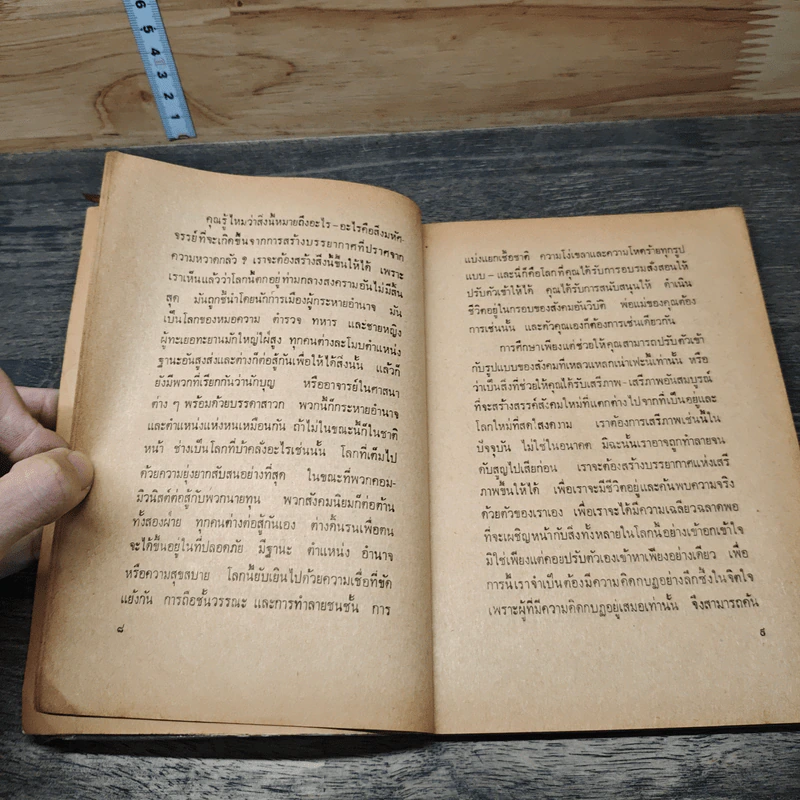 6 5 4 3 2 1
คุณรู้ไหมว่าสิ่งนี้หมายถึงอะไร – อะไรคือสิ่งมหัศ-
จรรย์ที่จะเกิดขึ้นจากการสร้างบรรยากาศที่ปราศจาก
ความหวาดกลัว ? เราจะต้องสร้างสิ่งนี้ขึ้นให้ได้ เพราะ
เราเห็นแล้วว่าโลกนี้ตกอยู่ท่ามกลางสงครามอันไม่มีสิ้น
สุด มันถูกชี้นำโดยนักการเมืองผู้กระหายอำนาจ มัน
เป็นโลกของหมอความ ตำรวจ ทหาร และชายหญิง
ผู้ทะเยอทะยานมักใหญ่ใฝ่สูง ทุกคนต่างละโมบตำแหน่ง
ฐานะอันสูงส่งและต่างก็ต่อสู้กันเพื่อให้ได้สิ่งนั้น แล้วก็
ยังมีพวกที่เรียกกันว่านักบุญ หรืออาจารย์ในศาสนา
ต่าง ๆ พร้อมด้วยบรรดาสาวก พวกนี้ก็กระหายอำนาจ
และตำแหน่งแห่งหนเหมือนกัน ถ้าไม่ในขณะนี้ก็ในชาติ
หน้า ช่างเป็นโลกที่บ้าคลั่งอะไรเช่นนั้น โลกที่เต็มไป
ด้วยความยุ่งยากสับสนอย่างที่สุด ในขณะที่พวกคอม-
มิวนิสต์ต่อสู้กับพวกนายทุน พวกสังคมนิยมก็ต่อต้าน
ทั้งสองฝ่าย ทุกคนต่างต่อสู้กันเอง ต่างดิ้นรนเพื่อตน
จะได้ขึ้นอยู่ในที่ปลอดภัย มีฐานะ ตำแหน่ง อำนาจ
หรือความสุขสบาย โลกนี้ยับเยินไปด้วยความเชื่อที่ขัด
แย้งกัน การถือชั้นวรรณะ และการทำลายชนชั้น การ
๘
แบ่งแยกเชื้อชาติ ความโง่เขลาและความโหดร้ายทุกรูป
แบบ – และนี่ก็คือโลกที่คุณได้รับการอบรมสั่งสอนให้
ปรับตัวเข้าให้ได้ คุณได้รับการสนับสนุนให้ ดำเนิน
ชีวิตอยู่ในกรอบของสังคมอันวิบัติ พ่อแม่ของคุณต้อง
การเช่นนั้น และตัวคุณเองก็ต้องการเช่นเดียวกัน
การศึกษาเพียงแต่ช่วยให้คุณสามารถปรับตัวเข้า
กับรูปแบบของสังคมที่เหลวแหลกเน่าเฟะนี้เท่านั้น หรือ
ว่าเป็นสิ่งที่ช่วยให้คุณได้รับเสรีภาพ – เสรีภาพอันสมบูรณ์
ที่จะสร้างสรรค์สังคมใหม่ที่แตกต่างไปจากที่เป็นอยู่และ
โลกใหม่ที่สดใสงดงาม เราต้องการเสรีภาพเช่นนี้ใน
ปัจจุบัน ไม่ใช่ในอนาคต มิฉะนั้นเราอาจถูกทำลายจน
ดับสูญไปเสียก่อน เราจะต้องสร้างบรรยากาศแห่งเสรี
ภาพขึ้นให้ได้ เพื่อเราจะมีชีวิตอยู่และค้นพบความจริง
ด้วยตัวของเราเอง เพื่อเราจะได้มีความเฉลียวฉลาดพอ
ที่จะเผชิญหน้ากับสิ่งทั้งหลายในโลกนี้อย่างเข้าอกเข้าใจ
มิใช่เพียงแต่คอยปรับตัวเองเข้าหาเพียงอย่างเดียว เพื่อ
การนี้เราจำเป็นต้องมีความคิดกบฏอย่างลึกซึ้งในจิตใจ
เพราะผู้ที่มีความคิดกบฏอยู่เสมอเท่านั้น จึงสามารถค้น
๙